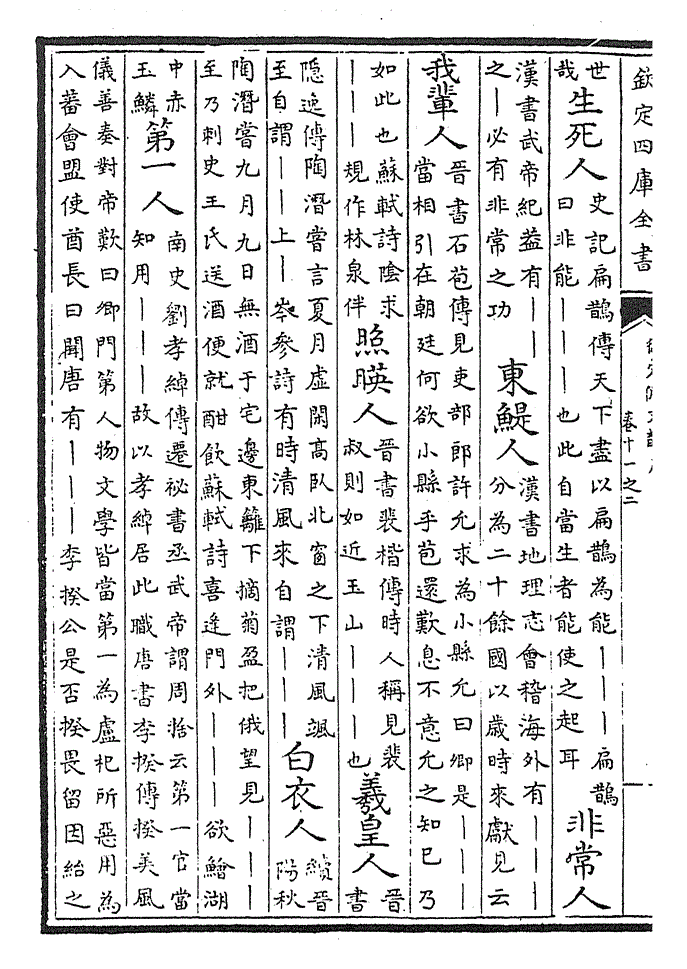 欽定四庫全書
卷十一之二
世哉生死人史記扁鵲傳天下盡以扁鵲為能｜｜｜扁鵲曰非能｜｜｜也此自當生者能使之起耳非常人
漢書武帝紀葢有｜｜｜之｜必有非常之功東鯷人漢書地理志會稽海外有｜｜｜分為二十餘國以歲時來獻見云
我輩人晉書石苞傳見吏部郎許允求為小縣允曰卿是｜｜｜當相引在朝廷何欲小縣乎苞還歎息不意允之知已乃
如此也蘇軾詩陰求｜｜｜規作林泉伴照暎人晉書裴楷傳時人稱見裴叔則如近玉山｜｜｜也羲皇人晉書
隱逸傳陶潛嘗言夏月虛閑高臥北窗之下清風颯至自謂｜｜上｜岑參詩有時清風來自謂｜｜｜白衣人續晉陽秋
陶潛嘗九月九日無酒于宅邊東籬下摘菊盈把俄望見｜｜｜至乃刺史王氏送酒便就酣飲蘇軾詩喜逢門外｜｜｜欲鱠湖
中赤玉鱗第一人南史劉孝綽傳遷祕書丞武帝謂周捨云第一官當知用｜｜｜故以孝綽居此職唐書李揆傳揆美風
儀善奏對帝歎曰卿門第人物文學皆當第一為盧杞所惡用為入蕃會盟使酋長曰聞唐有｜｜｜李揆公是否揆畏留因紿之